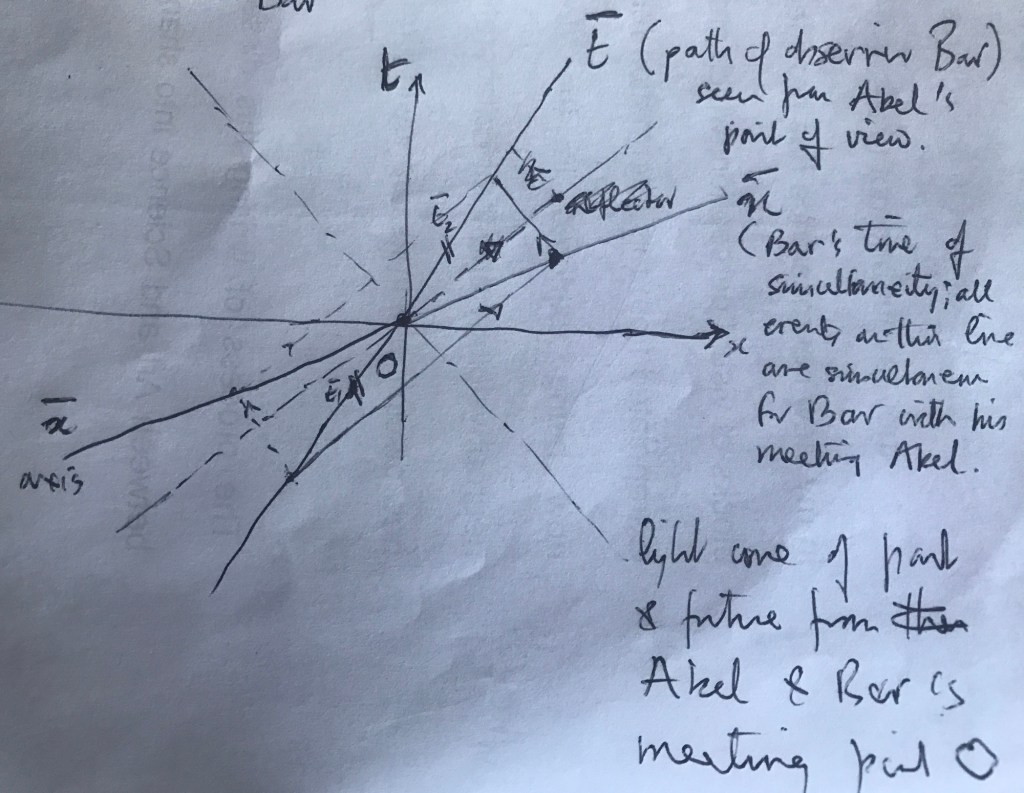 Bar
t
t̄ (path of observer Bar)
seen from Abel's
point of view.
Ē₂
reflector
x̄
(Bar's line of
simultaneity; all
events on this line
are simultaneous
for Bar with his
meeting Abel.
x
O
Ē₁
x̄
axis
light cone of past
& future from
Abel & Bar's
meeting point O